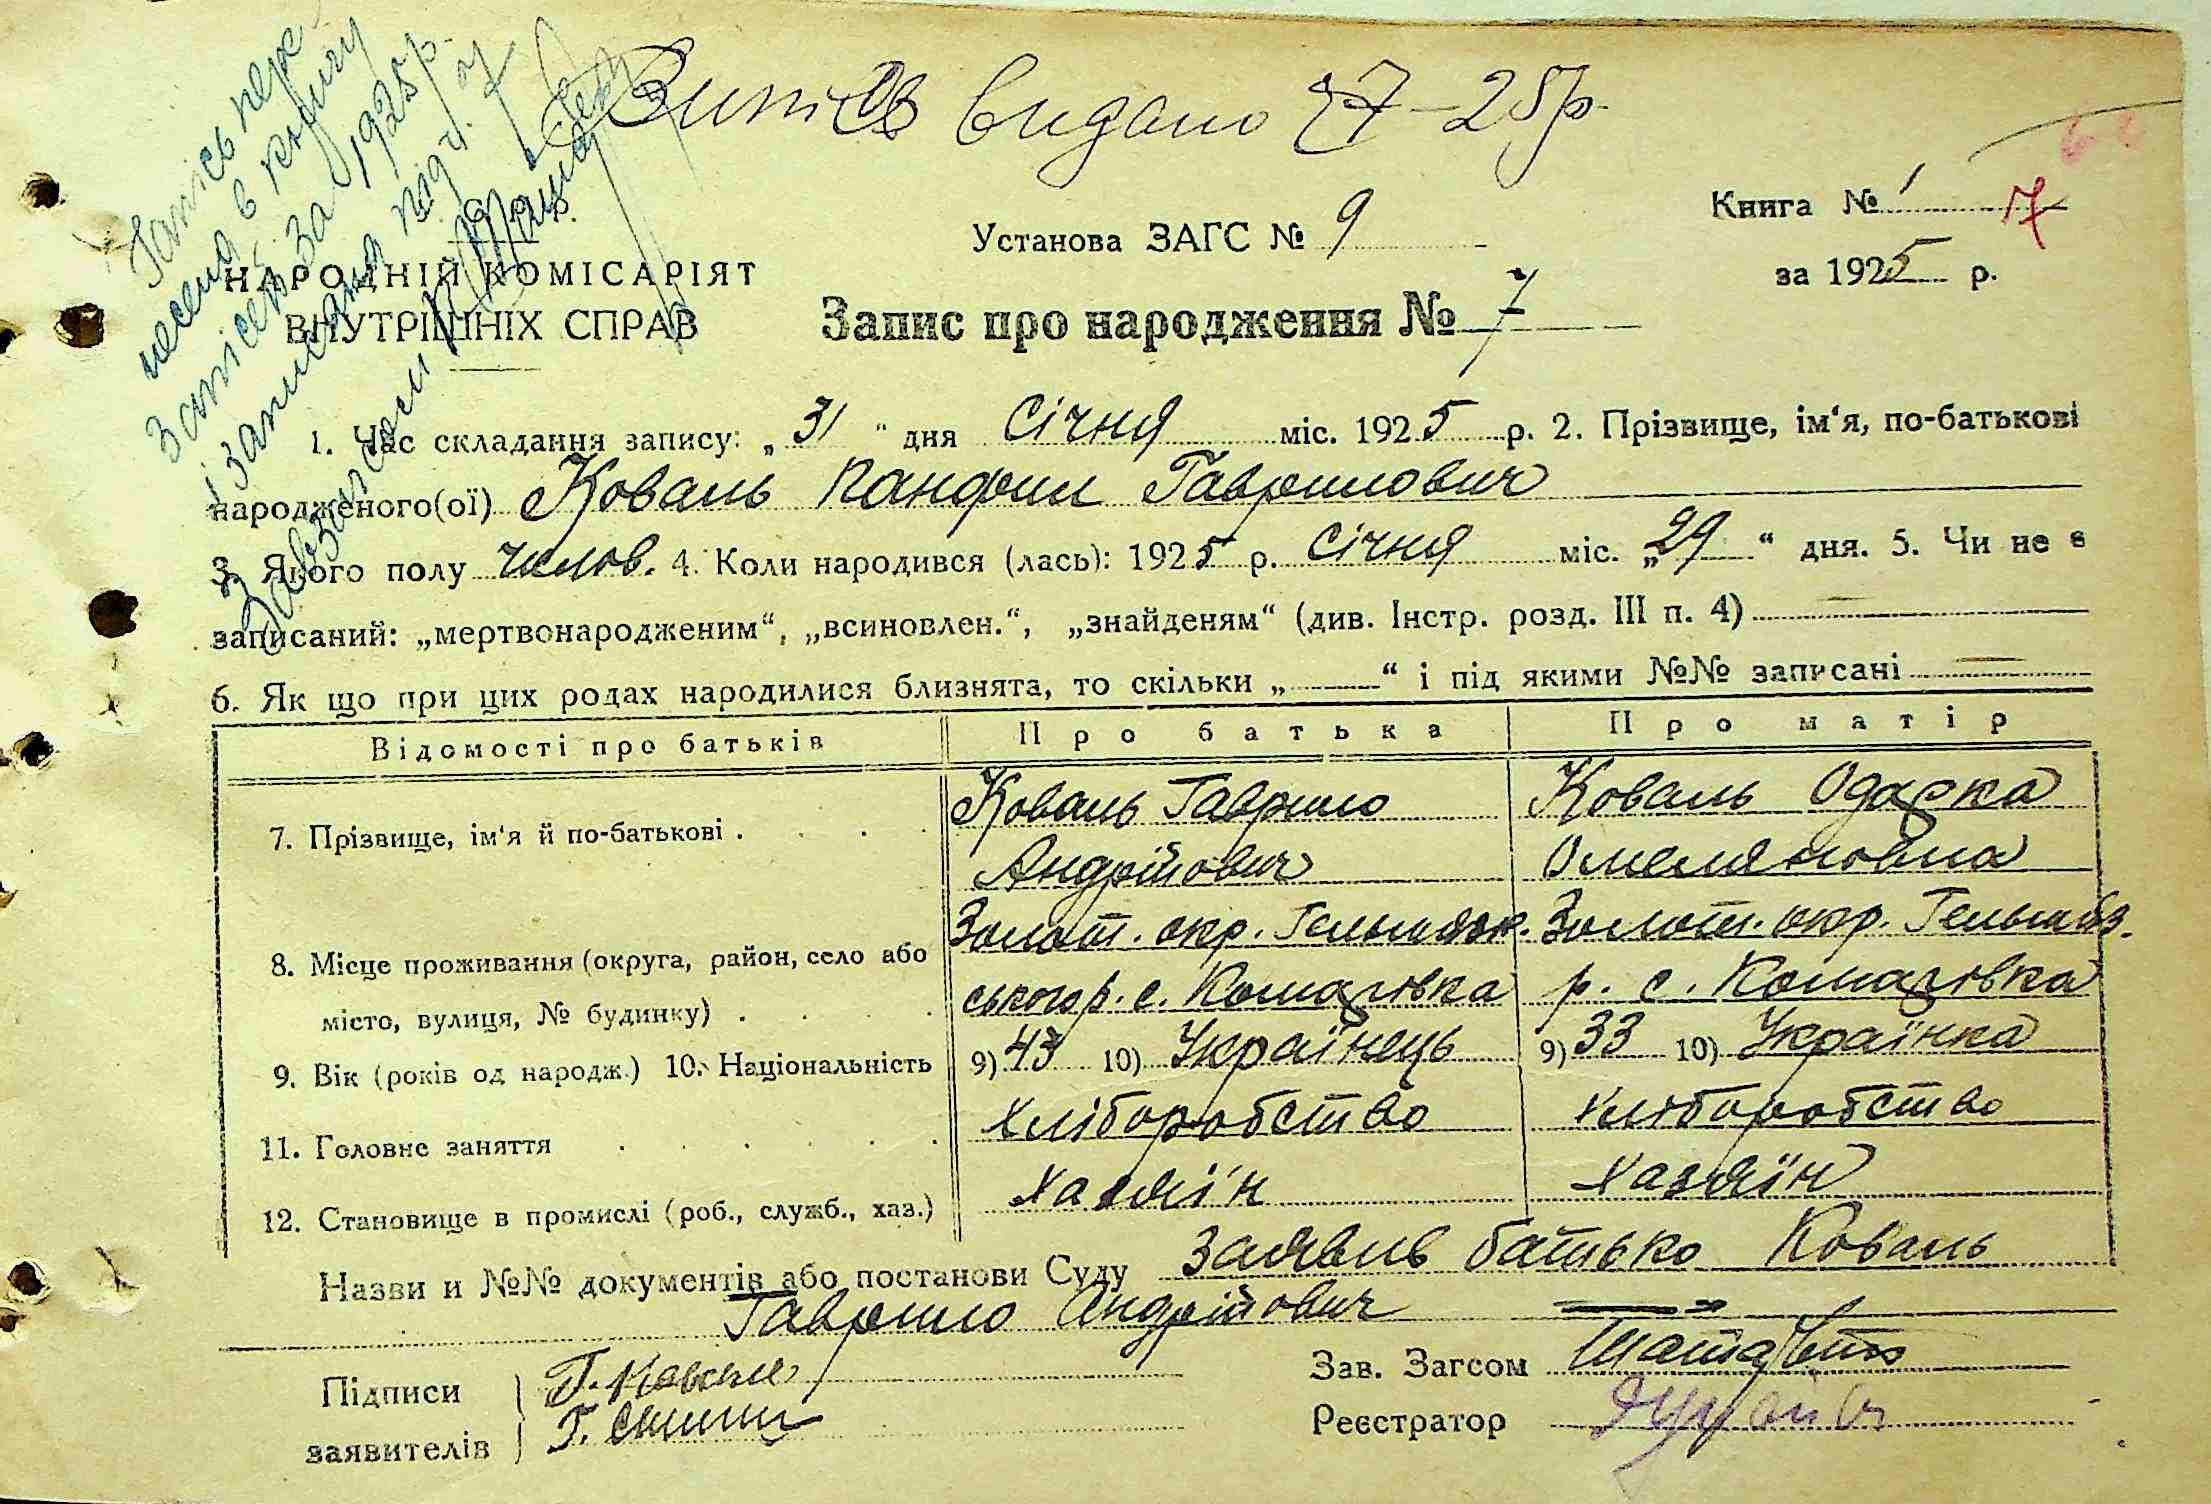 Запись пере
несена в книгу
записей за 1925 р.
і записана під ч. 7
Зав. загсом
Випис видано 27-25р.
Установа ЗАГС № 9
Книга № 1 7
за 1925 р.
НАРОДНІЙ КОМІСАРІЯТ
ВНУТРІШНІХ СПРАВ
Запис про народження № 7
1. Час складання запису: „31" дня Січня міс. 1925 р. 2. Прізвище, ім'я, по-батькові
народженого(ої) Коваль Панфил Гаврилович
3. Якого полу Чолов. 4. Коли народився (лась): 1925 р. Січня міс. „29" дня. 5. Чи не є
записаний: „мертвонародженим", „всиновлен.", „знайденям" (див. Інстр. розд. III п. 4)
6. Як що при цих родах народилися близнята, то скільки „—" і під якими №№ записані —
Відомості про батьків Про батька Про матір
7. Прізвище, ім'я й по-батькові . Коваль Гаврило Коваль Одарка
Андрійович Омеляновна
Золот. окр. Гельмязо Золот. окр. Гельмяз.
8. Місце проживання (округа, район, село або
ського р. с. Комарівка р. с. Комарівка
місто, вулиця, № будинку) .
9. Вік (років од народж.) 10. Національність 9) 43 10) Українець 9) 33 10) Українка
11. Головне заняття Хліборобство Хліборобство
12. Становище в промислі (роб., служб., хаз.) Хазяїн Хазяїн
Назви и №№ документів або постанови Суду Заявив батько Коваль
Гаврило Андрійович
Підписи Г. Коваль Зав. Загсом
заявителів Г. Реєстратор